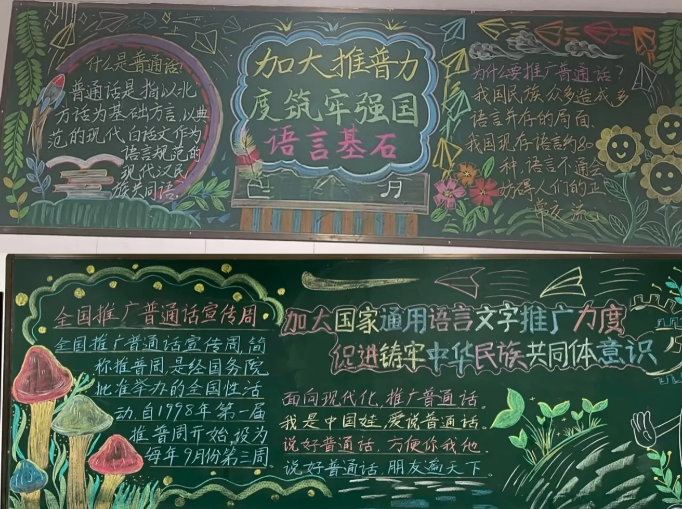 什么是普通话?
普通话是指以北
方话为基础方言,以典
范的现代白话文作为
语言规范的
现代汉民
族共同语。
加大推普力
度筑牢强国
语言基石
月
为什么要推广普通话?
我国民族众多造成多
语言并存的局面.
我国现存语言约80
种,语言不通会
妨碍人们的正
常交流。
全国推广普通话宣传周
全国推广普通话宣传周,简
称推普周是经国务院
批准举办的全国性活
动.自1998年第一届
推普周开始,设为
每年9月份第三周.
加大国家通用语言文字推广力度
促进铸牢中华民族共同体意识
面向现代化,推广普通话.
我是中国娃,爱说普通话.
说好普通话,方便你我他.
说好普通话,朋友遍天下.